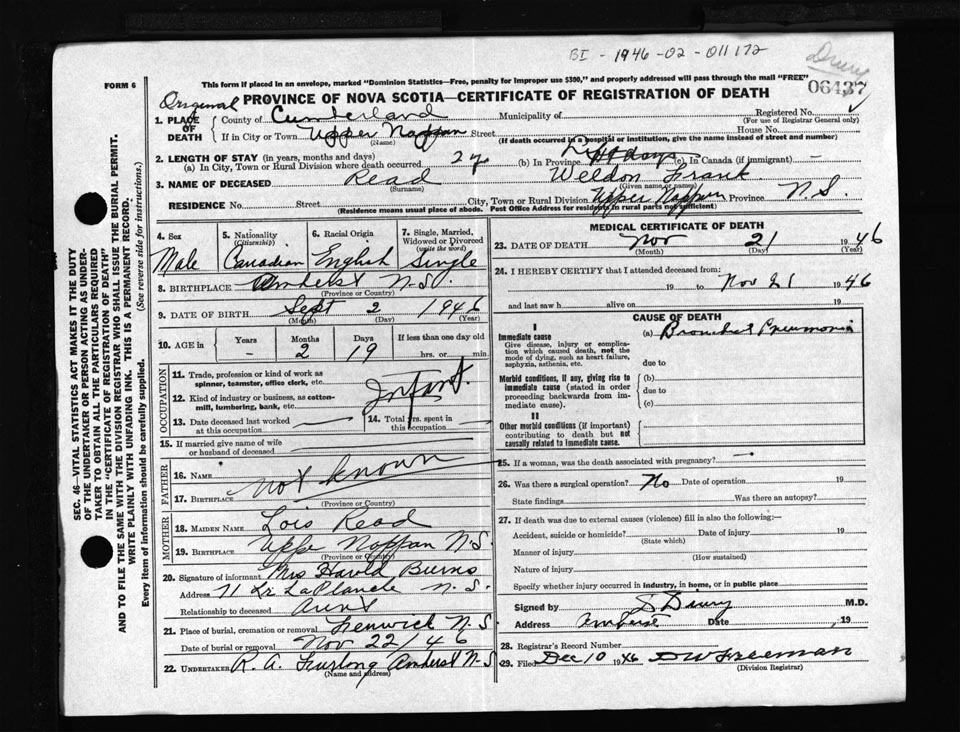 BI - 1946-02-011172
Drury
FORM 6
This form if placed in an envelope, marked "Dominion Statistics—Free, penalty for improper use $300," and properly addressed will pass through the mail "FREE"
06437
Original
PROVINCE OF NOVA SCOTIA—CERTIFICATE OF REGISTRATION OF DEATH
1. PLACE OF DEATH
County of Cumberland Municipality of Registered No.
(For use of Registrar General only)
If in City or Town Upper Nappan Street House No.
(Name) (If death occurred in a hospital or institution, give the name instead of street and number)
2. LENGTH OF STAY (in years, months and days)
(a) In City, Town or Rural Division where death occurred (b) In Province Life days (c) In Canada (if immigrant) —
3. NAME OF DECEASED Read Weldon Frank
(Surname) (Given name or names)
RESIDENCE No. Street City, Town or Rural Division Upper Nappan Province N.S.
(Residence means usual place of abode. Post Office Address for residents in rural parts not sufficient)
4. Sex
Male
5. Nationality (Citizenship)
Canadian
6. Racial Origin
English
7. Single, Married, Widowed or Divorced (write the word)
Single
8. BIRTHPLACE Amherst N.S.
(Province or Country)
9. DATE OF BIRTH Sept 2 1946
(Month) (Day) (Year)
10. AGE in Years Months Days If less than one day old
— 2 19 hrs. or min.
OCCUPATION
11. Trade, profession or kind of work as spinner, teamster, office clerk, etc.
Infant
12. Kind of industry or business, as cotton-mill, lumbering, bank, etc.
13. Date deceased last worked at this occupation
14. Total yrs. spent in this occupation
15. If married give name of wife or husband of deceased
FATHER
16. Name
not known
17. Birthplace
(Province or Country)
MOTHER
18. Maiden Name Lois Read
19. Birthplace Uppe Nappan N.S.
(Province or Country)
20. Signature of informant Mrs Harold Burns
Address 71 Lr. LaPlanche N.S.
Relationship to deceased Aunt
21. Place of burial, cremation or removal Fenwick N.S.
Date of burial or removal Nov 22/46
22. UNDERTAKER R. A. Furlong Amherst N.S.
(Name and address)
MEDICAL CERTIFICATE OF DEATH
23. DATE OF DEATH Nov 21 1946
(Month) (Day) (Year)
24. I HEREBY CERTIFY that I attended deceased from:
19 to Nov 21 1946
and last saw h alive on 19
CAUSE OF DEATH
I
Immediate cause
Give disease, injury or complication which caused death, not the mode of dying, such as heart failure, asphyxia, asthenia, etc.
(a) Bronchial Pneumonia
due to
Morbid conditions, if any, giving rise to immediate cause (stated in order proceeding backwards from immediate cause).
(b)
due to
(c)
II
Other morbid conditions (if important) contributing to death but not causally related to immediate cause.
25. If a woman, was the death associated with pregnancy? —
26. Was there a surgical operation? No Date of operation 19
State findings Was there an autopsy?
27. If death was due to external causes (violence) fill in also the following:—
Accident, suicide or homicide? Date of injury 19
(State which)
Manner of injury
(How sustained)
Nature of injury
Specify whether injury occurred in industry, in home, or in public place
Signed by D Drury M.D.
Address Amherst Date , 19
28. Registrar's Record Number
29. Filed Dec 10 1946 DW Freeman
(Division Registrar)
SEC. 46—VITAL STATISTICS ACT MAKES IT THE DUTY
OF THE UNDERTAKER OR PERSON ACTING AS UNDER-
TAKER TO OBTAIN ALL THE PARTICULARS REQUIRED
IN THE "CERTIFICATE OF REGISTRATION OF DEATH"
AND TO FILE THE SAME WITH THE DIVISION REGISTRAR WHO SHALL ISSUE THE BURIAL PERMIT.
WRITE PLAINLY WITH UNFADING INK. THIS IS A PERMANENT RECORD.
Every item of information should be carefully supplied. (See reverse side for instructions.)